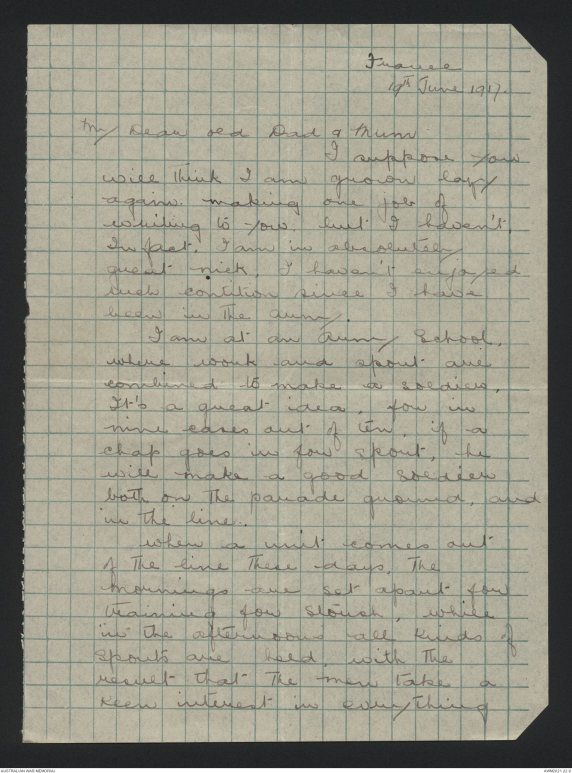 France
19th June 1917.
My Dear old Dad & Mum
I suppose you
will think I am grown lazy
again making one job of
writing to you. but I haven't.
In fact, I am in absolutely
great nick. I haven't enjoyed
such contition since I have
been in the Army.
I am at an Army School,
where work and sport are
combined to make a soldier.
It's a great idea, for in
nine cases out of ten, if a
chap goes in for sport, he
will make a good soldier
both on the parade ground, and
in the line.
When a unit comes out
of the line these days, the
mornings are set apart for
training for stoush, while
in the afternoons all kinds of
sports are held, with the
result that the men take a
keen interest in everything
AUSTRALIAN WAR MEMORIAL
AWM2021.22.5